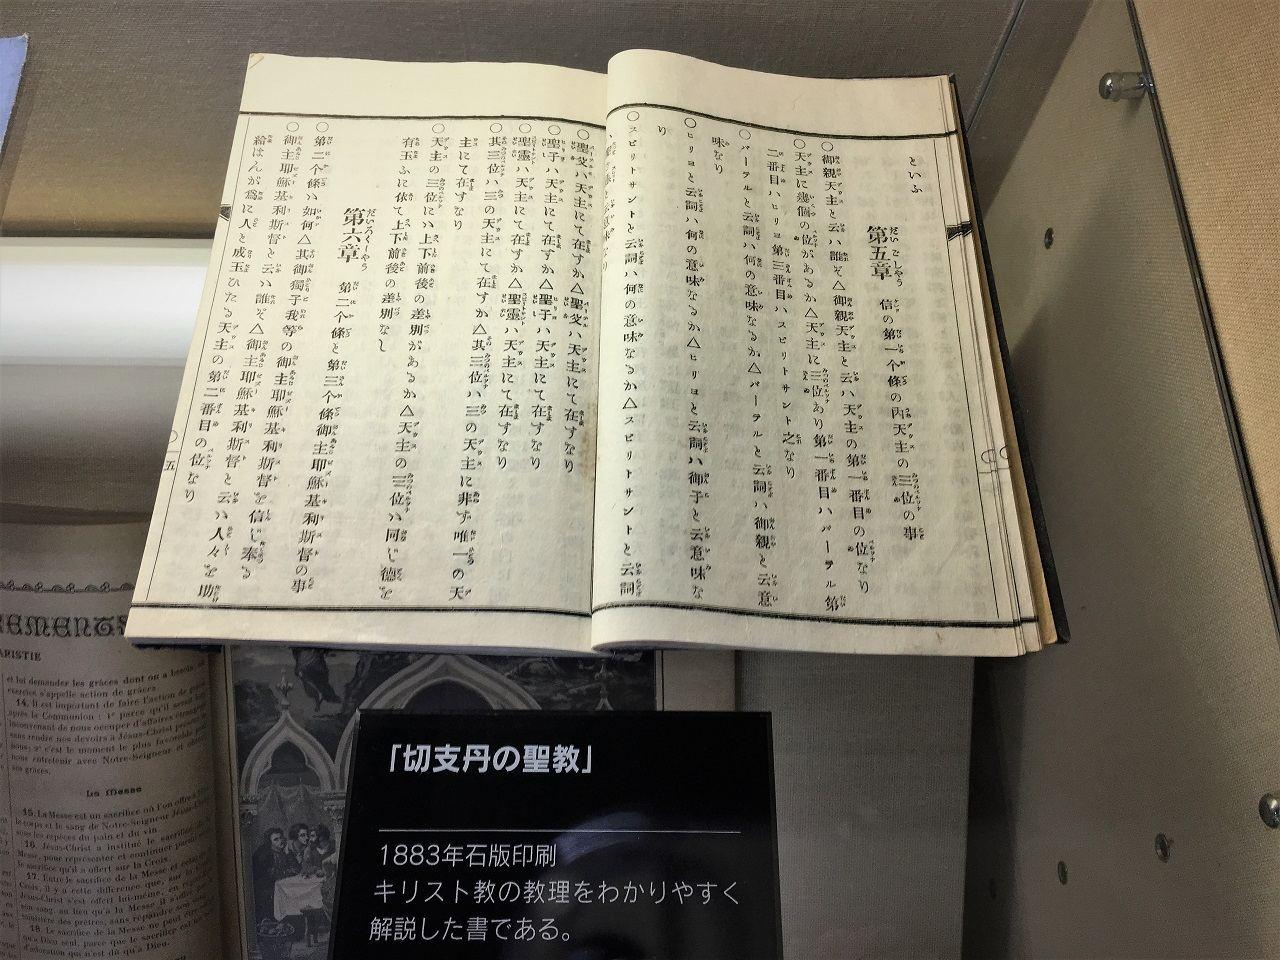 といふ
第五章 信の第一个條の內天主の三位の事
○御親天主と云ハ誰ぞ△御親天主と云ハ天主の第一番目の位なり
○天主に幾個の位があるか△天主に三位あり第一番目ハパーテル第
二番目ハヒリヨ第三番目ハスピリトサント之なり
○パーテルと云詞ハ何の意味なるか△パーテルと云詞ハ御親と云意
味なり
○ヒリヨと云詞ハ何の意味なるか△ヒリヨと云詞ハ御子と云意味な
り
○スピリトサントと云詞ハ何の意味なるか△スピリトサントと云詞
○聖父ハ天主にて在すか△聖父ハ天主にて在すなり
○聖子ハ天主にて在すか△聖子ハ天主にて在すなり
○聖靈ハ天主にて在すか△聖靈ハ天主にて在すなり
○其三位ハ三の天主にて在すか△其三位ハ三の天主に非ず唯一の天
主にて在すなり
○天主の三位にハ上下前後の差別があるか△天主の三位ハ同じ德を
有玉ふに依て上下前後の差別なし
第六章 第二个條と第三个條御主耶穌基利斯督の事
○第二个條ハ如何△其御獨子我等の御主耶穌基利斯督を信じ奉る
○御主耶穌基利斯督と云ハ誰ぞ△御主耶穌基利斯督と云ハ人々を助
給はんが爲に人と成玉ひたる天主の第二番目の位なり
五
REMENTS
ARISTIE
et lui demander les grâces dont on a besoin,
exercice s'appelle action de grâces
14. Il est important de faire l'action de
après la Communion : 1° parce qu'il serait
inconvenant de nous occuper d'affaires
sans rendre nos devoirs à Jésus-Christ
nous; 2° c'est le moment le plus favorable
nous entretenir avec Notre-Seigneur et
ses grâces.
La Messe
15. La Messe est un sacrifice où l'on offre
le corps et le sang de Notre-Seigneur
sous les espèces du pain et du vin
16. Jésus-Christ a institué le sacrifice
Messe, pour représenter et continuer
le sacrifice qu'il a offert sur la Croix.
17. Entre le sacrifice de la Messe et
Croix, il y a cette différence que, sur la
Jésus-Christ s'est offert lui-même, en
sang, au lieu qu'à la Messe il
ministère des prêtres, sans répandre son
18. Le sacrifice de la Messe ne peut
qu'à Dieu seul, parce que le sacrifice
d'adoration qui n'est dû qu'à Dieu.
「切支丹の聖教」
1883年石版印刷
キリスト教の教理をわかりやすく
解説した書である。